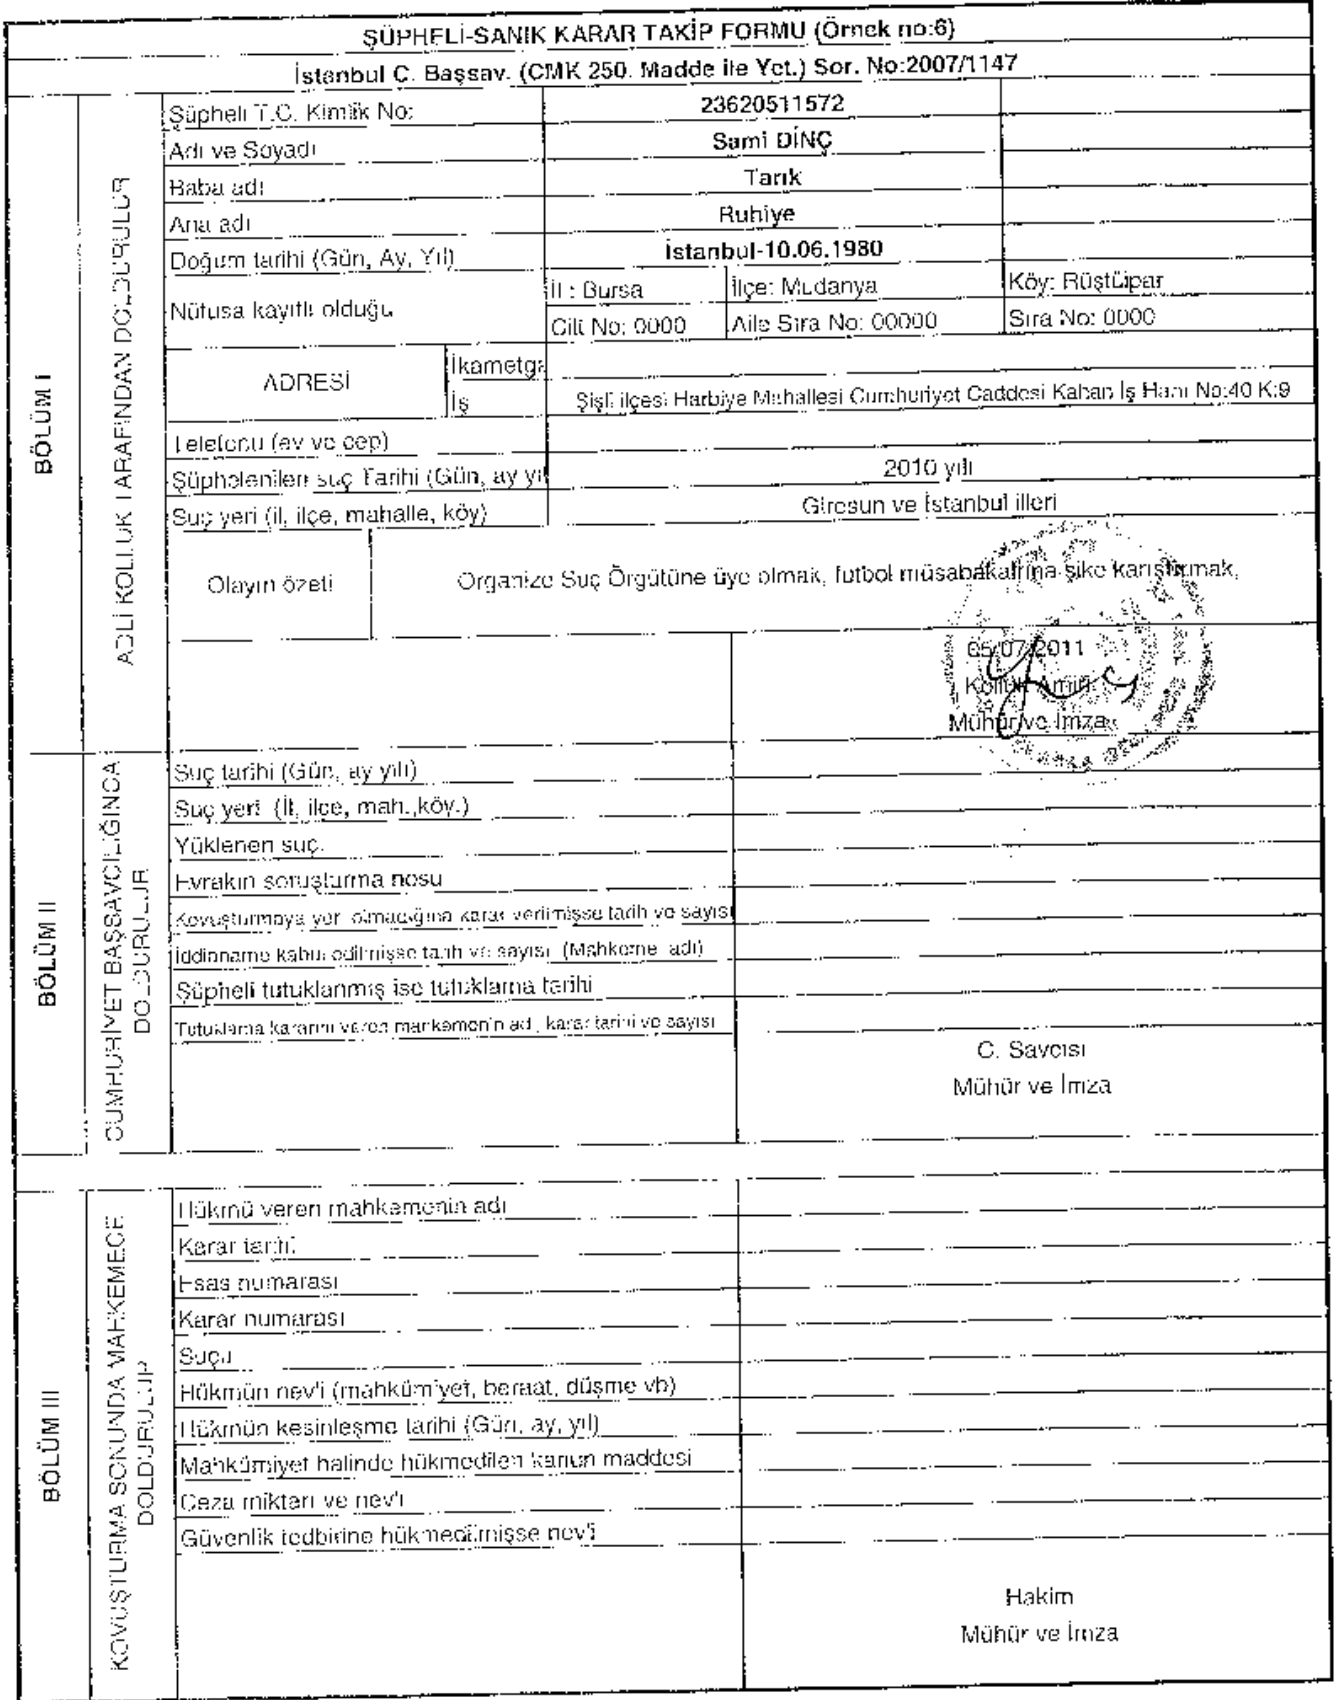 ŞÜPHELİ-SANIK KARAR TAKİP FORMU (Örnek no:6)
İstanbul C. Başsav. (CMK 250. Madde ile Yet.) Sor. No:2007/1147
BÖLÜM I
ADLİ KOLLUK TARAFINDAN DOLDURULUR
Şüpheli T.C. Kimlik No: 23620511572
Adı ve Soyadı Sami DİNÇ
Baba adı Tarık
Ana adı Ruhiye
Doğum tarihi (Gün, Ay, Yıl) İstanbul-10.06.1980
Nüfusa kayıtlı olduğu İl : Bursa İlçe: Mudanya Köy: Rüştüpar
Cilt No: 0000 Aile Sıra No: 00000 Sıra No: 0000
ADRESİ İkametga
İş Şişli ilçesi Harbiye Mahallesi Cumhuriyet Caddesi Kahan İş Hanı No:40 K:9
Telefonu (ev ve cep)
Şüphelenilen suç Tarihi (Gün, ay yıl 2010 yılı
Suç yeri (il, ilçe, mahalle, köy) Giresun ve İstanbul illeri
Olayın özeti Organize Suç Örgütüne üye olmak, futbol müsabakalrına şike karıştırmak,
05/07/2011
Kolluk Amiri
Mühür ve İmza
BÖLÜM II
CUMHURİYET BAŞSAVCILIĞINCA DOLDURULUR
Suç tarihi (Gün, ay yılı)
Suç yeri (İl, ilçe, mah.,köy.)
Yüklenen suç.
Evrakın soruşturma nosu
Kovuşturmaya yer olmadığına karar verilmişse tarih ve sayısı
İddianame kabul edilmişse tarih ve sayısı (Mahkeme adı)
Şüpheli tutuklanmış ise tutuklama tarihi
Tutuklama kararını veren mahkemenin adı, karar tarihi ve sayısı
C. Savcısı
Mühür ve İmza
BÖLÜM III
KOVUŞTURMA SONUNDA MAHKEMECE DOLDURULUR
Hükmü veren mahkemenin adı
Karar tarihi
Esas numarası
Karar numarası
Suçu
Hükmün nev'i (mahkûmiyet, beraat, düşme vb)
Hükmün kesinleşme tarihi (Gün, ay, yıl)
Mahkûmiyet halinde hükmedilen kanun maddesi
Ceza miktarı ve nev'i
Güvenlik tedbirine hükmedilmişse nev'i
Hakim
Mühür ve İmza